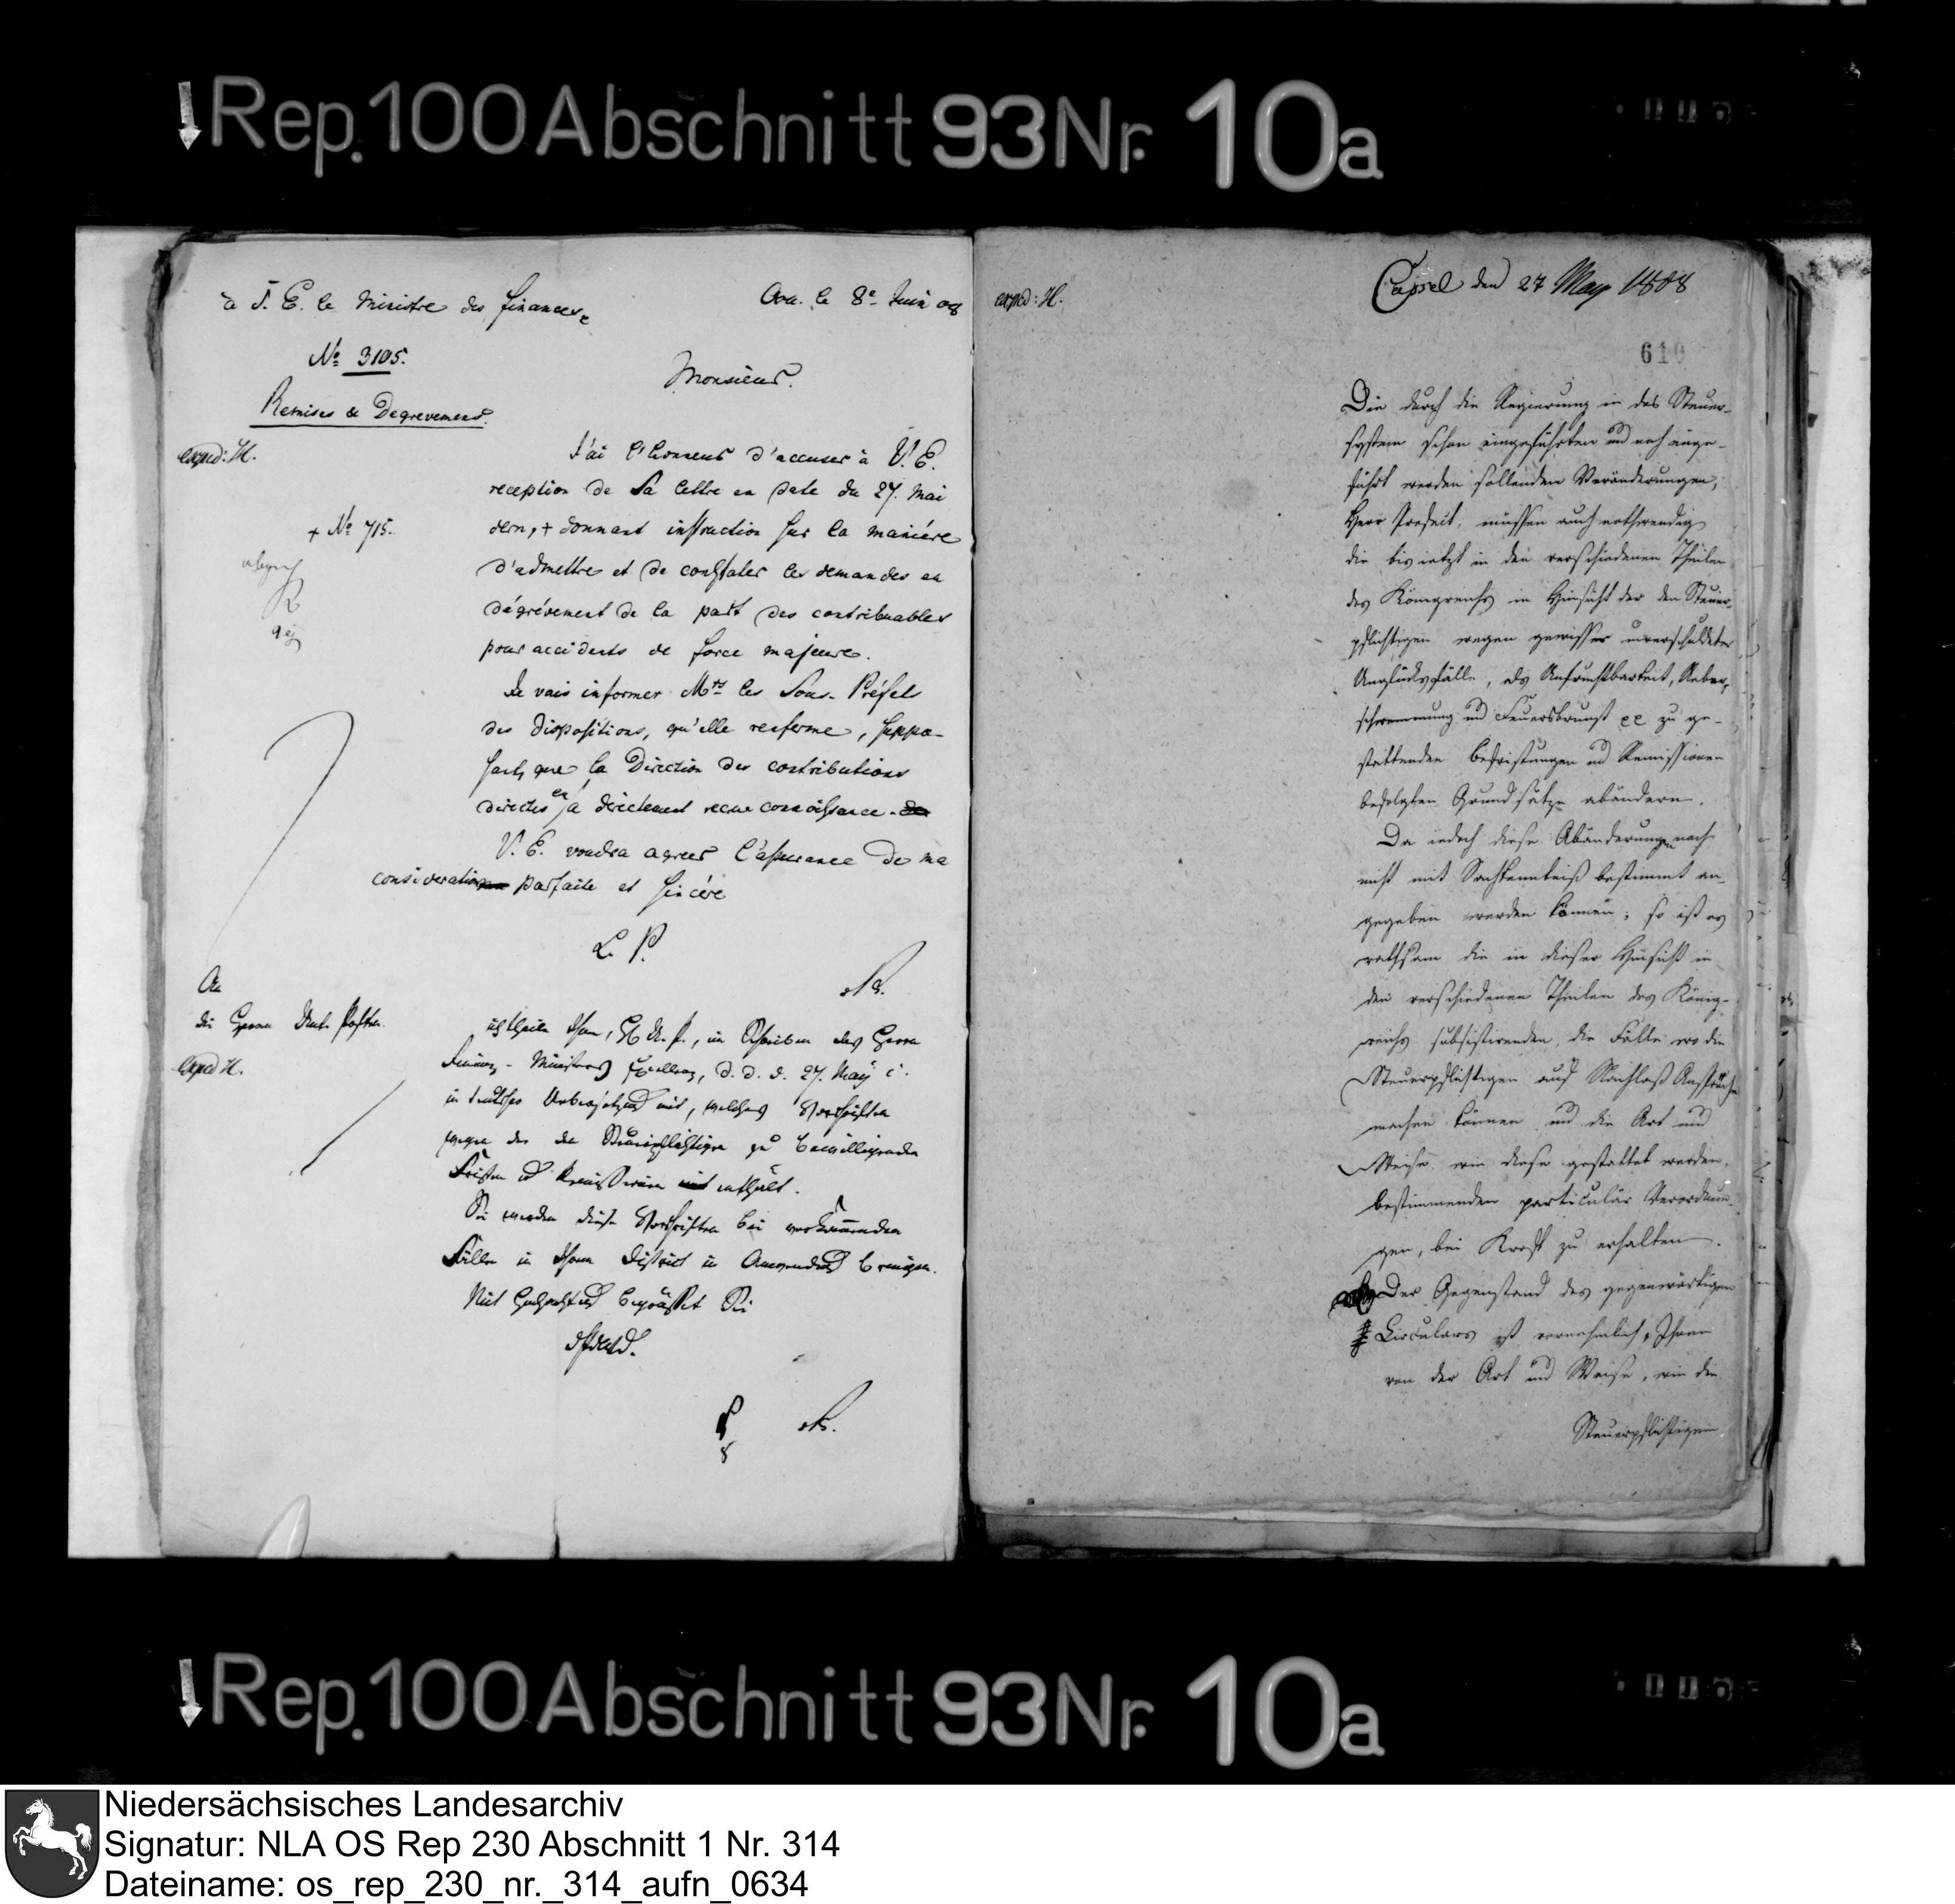 Rep. 100 Abschnitt 93 Nr. 10a
à S. E. le Ministre des finances.
Osn. le 8e Juin 08
No 3105.
Monsieur.
Remises & Degrevement.
exped: H.
J'ai l'honneur d'accuser à V. E.
reception de Sa lettre en date du 27. Mai
+ No 715.
dern, + donnant instruction sur la maniére
d'admettre et de constater les demandes en
dégrévement de la part des contribuables
pour accidents de force majeure.
Je vais informer Mrs les Sous-Préfets
des dispositions, qu'elle renferme, suppo-
sant, que la Direction des contributions
directes en a directement recue connoissance. de
V. E. voudra agreer l'assurance de ma
consideration parfaite et sincére
L. P.
An
die Herren Unt. Präfecten
exped H.
ich theile Ihnen, H. U. P., ein Schreiben des Herrn
Finanz-Ministers Excellenz, d. d. 27. May c.
in teutscher Uebersetzung mit, welches Vorschriften
wegen der den Steuerpflichtigen zu bewilligenden
Fristen und Remissionen enthält.
Sie werden diese Vorschriften bei vorkommenden
Fällen in Ihrem District in Anwendung bringen.
Mit Hochachtung begrüsset Sie
exped: H.
Cassel den 27 May 1808
610
Die durch die Regierung in das Steuer-
system schon eingeführten und noch einge-
führt werden sollenden Veränderungen,
Herr Präfect, müssen auch nothwendig
die bis jetzt in den verschiedenen Theilen
des Königreichs in Hinsicht der den Steuer-
pflichtigen wegen gewisser unverschuldeter
Unglücksfälle, als Unfruchtbarkeit, Ueber-
schwemmung und Feuersbrunst cc zu ge-
stattenden Befristungen und Remissionen
befolgten Grundsätze abändern.
Da jedoch diese Abänderungen noch
nicht mit Sachkenntniß bestimmt an-
gegeben werden können; so ist es
rathsam die in dieser Hinsicht in
den verschiedenen Theilen des König-
reichs subsistirenden, die Fälle wo die
Steuerpflichtigen auf Nachlaß Ansprüche
machen können und die Art und
Weise wie diese gestattet werden,
bestimmenden particulär Verordnun-
gen, bei Kraft zu erhalten.
Der Gegenstand des gegenwärtigen
Circulars ist vornehmlich, Ihnen
von der Art und Weise, wie die
Steuerpflichtigen
Rep. 100 Abschnitt 93 Nr. 10a
Niedersächsisches Landesarchiv
Signatur: NLA OS Rep 230 Abschnitt 1 Nr. 314
Dateiname: os_rep_230_nr._314_aufn_0634